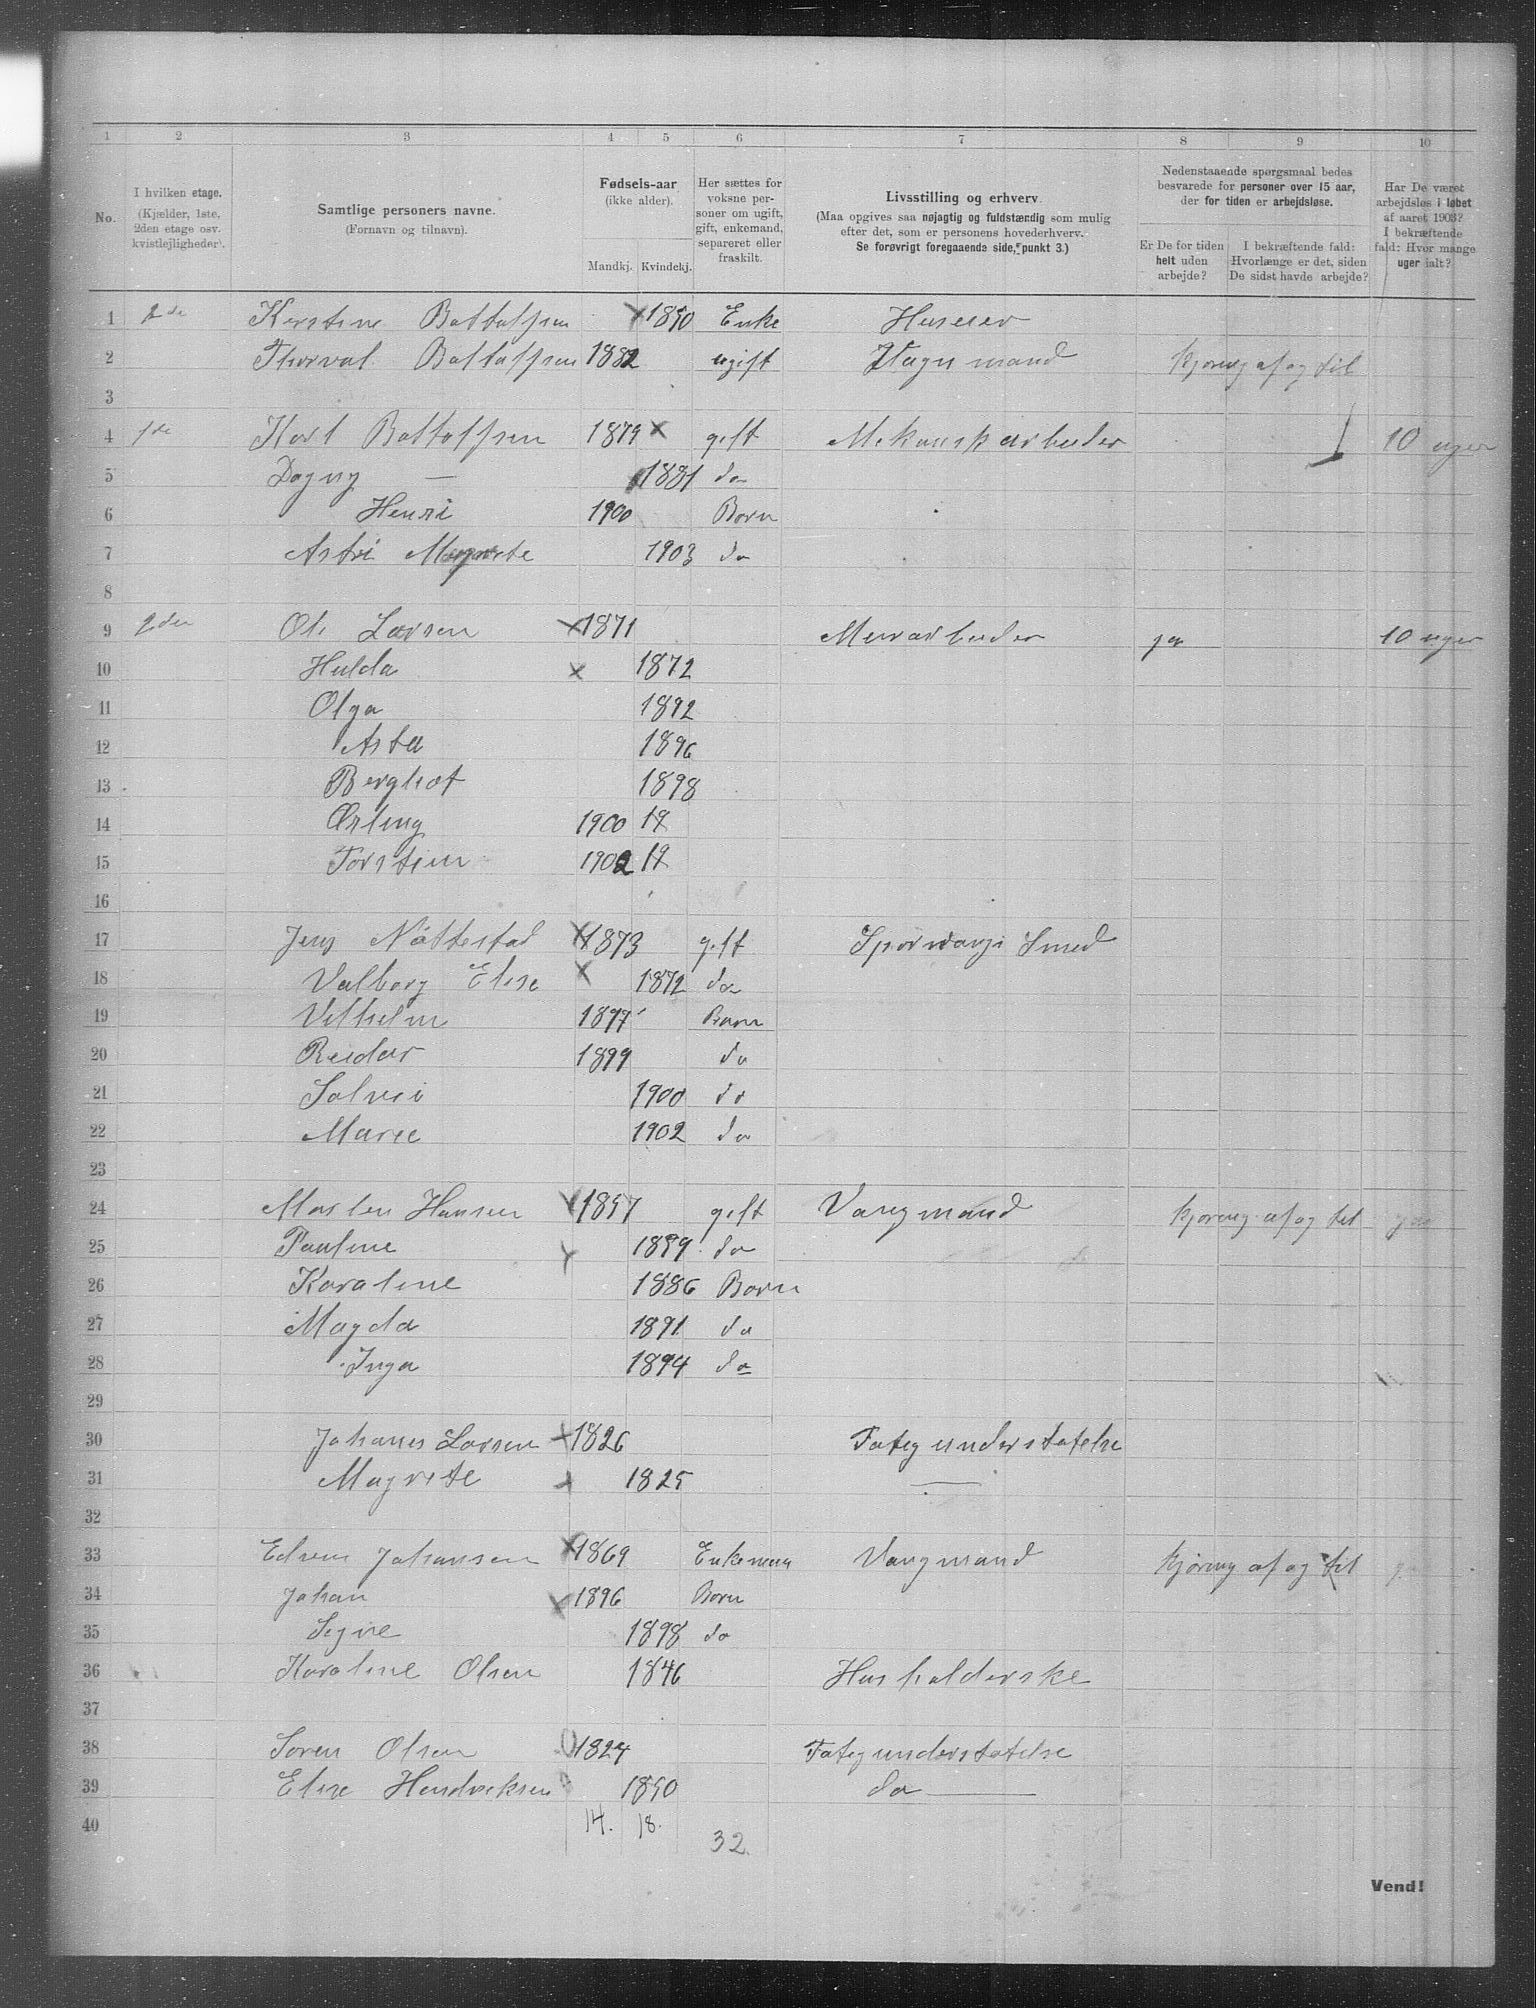 1 2 3 4 5 6 7 8 9 10
No.
I hvilken etage.
(Kjælder, 1ste,
2den etage osv.
kvistlejligheder).
Samtlige personers navne.
(Fornavn og tilnavn).
Fødsels-aar
(ikke alder).
Mandkj. Kvindekj.
Her sættes for
voksne per-
soner om ugift,
gift, enkemand,
separeret eller
fraskilt.
Livsstilling og erhverv.
(Maa opgives saa nøjagtig og fuldstændig som mulig
efter det, som er personens hovederhverv.
Se forøvrigt foregaaende side, punkt 3.)
Nedenstaaende spørgsmaal bedes
besvarede for personer over 15 aar,
der for tiden er arbejdsløse.
Er De for tiden
helt uden
arbejde?
I bekræftende fald:
Hvorlænge er det, siden
De sidst havde arbejde?
Har De været
arbejdsløs i løbet
af aaret 1903?
I bekræftende
fald: Hvor mange
uger ialt?
1 2de Kerstine Bottolfsen x 1850 Enke Huseier
2 Thorval Bottolfsen 1882 ugift mand kjøring af og til
3
4 1de Karl Bottolfsen 1879 x gift Mekanisk arbeider 10 uger
5 Dagny — 1881 do
6 Henri 1900 Barn
7 Astri Magrete 1903 do
8
9 2den Ole Larsen x 1871 Murarbeider ja 10 uger
10 Hulda x 1872
11 Olga 1892
12 Asta 1896
13 Berghot 1898
14 Erling 1900 19
15 Torstein 1902 19
16
17 Jens Nöttestad x 1873 gift Sporvangs Smed
18 Valborg Elise x 1872 do
19 Vilhelm 1897 Barn
20 Reidar 1899 do
21 Solvei 1900 do
22 Marie 1902 do
23
24 Morten Hansen x 1857 gift Vangmand kjøring af og til
25 Pauline x 1859 do
26 Karoline 1886 Barn
27 Magda 1891 do
28 Inga 1894 do
29
30 Johanes Larsen x 1826 Fatig understøtelse
31 Magrete x 1825 —
32
33 Johansen x 1869 Enkeman Vangmand kjøring af og til
34 Johan x 1896 Barn
35 Signe 1898 do
36 Karoline Olsen 1846 Husholderske
37
38 Soren Olsen 1824 Fatig understøtelse
39 Elise Hendreksen 1850 do —
40 14. 18.
32
Vend!